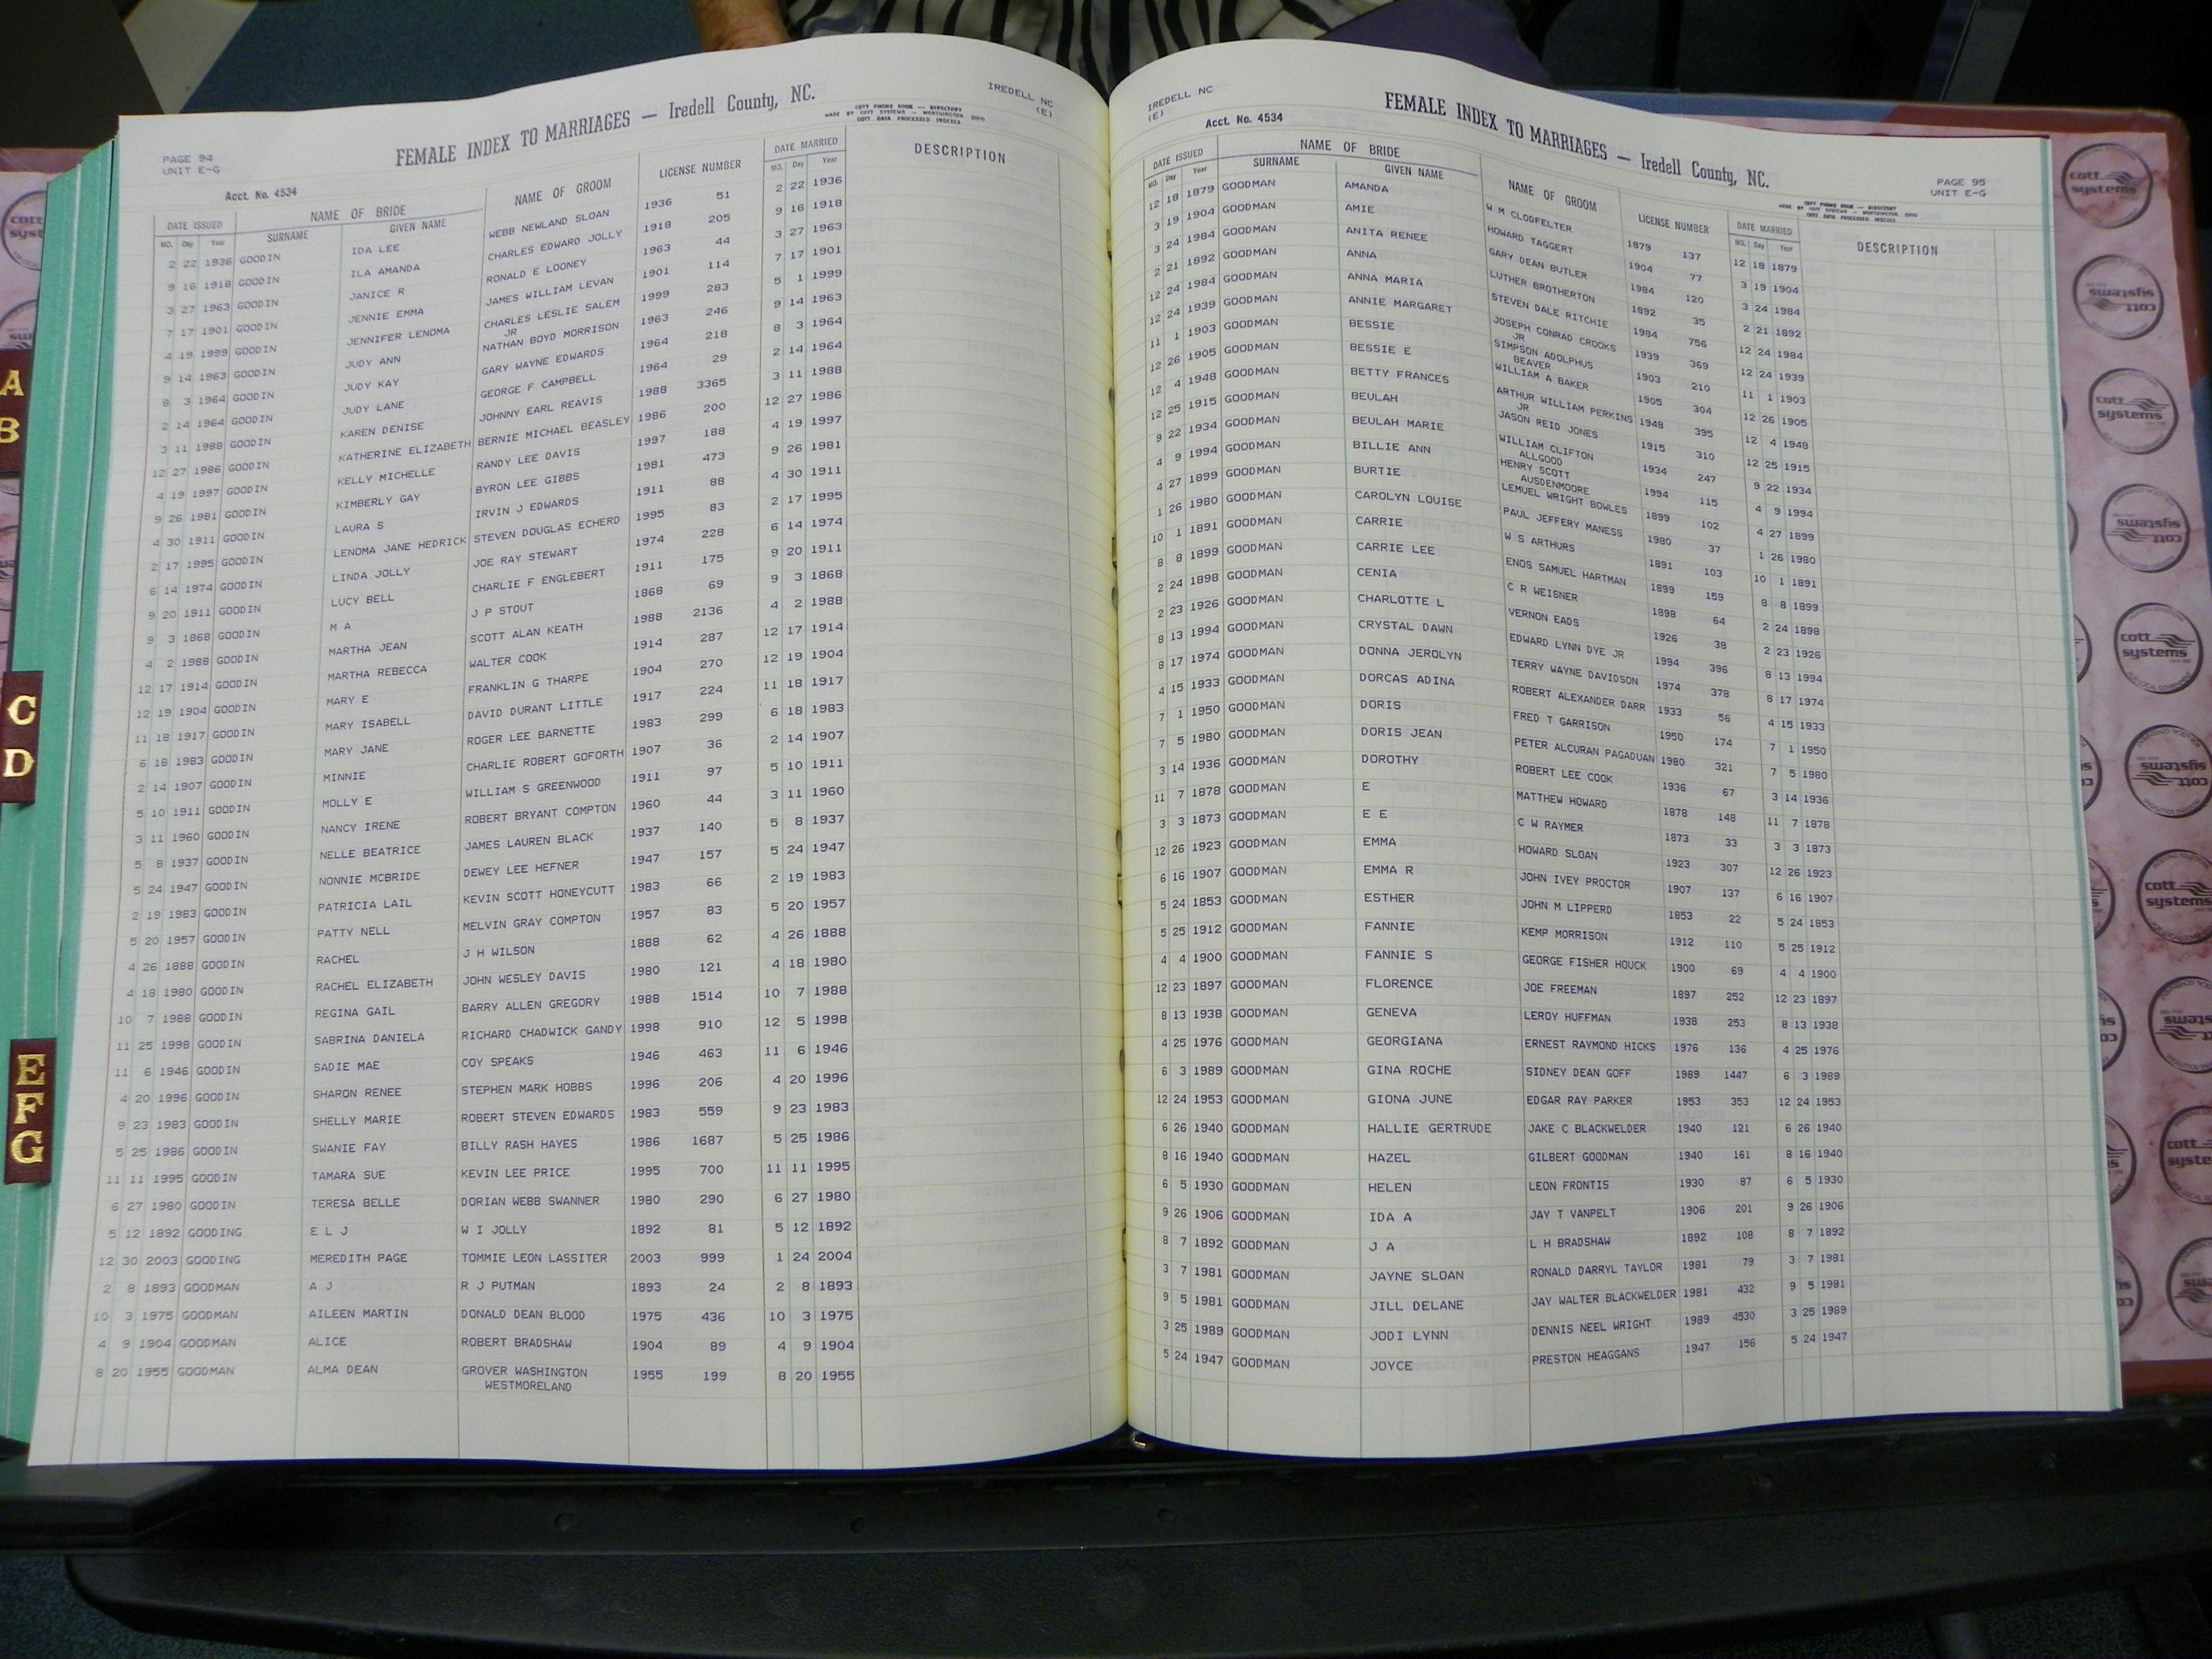 PAGE 94
UNIT E-G
FEMALE INDEX TO MARRIAGES — Iredell County, NC.
MADE BY COTT PHONE BOOK — DIRECTORY
COTT SYSTEMS — WORTHINGTON, OHIO
COTT DATA PROCESSED INDEXES
IREDELL NC
(E)
Acct. No. 4534
DATE ISSUED NAME OF BRIDE NAME OF GROOM LICENSE NUMBER DATE MARRIED DESCRIPTION
MO. Day Year SURNAME GIVEN NAME MO. Day Year
2 22 1936 GOODIN IDA LEE WEBB NEWLAND SLOAN 1936 51 2 22 1936
9 16 1918 GOODIN ILA AMANDA CHARLES EDWARD JOLLY 1918 205 9 16 1918
3 27 1963 GOODIN JANICE R RONALD E LOONEY 1963 44 3 27 1963
7 17 1901 GOODIN JENNIE EMMA JAMES WILLIAM LEVAN 1901 114 7 17 1901
4 19 1999 GOODIN JENNIFER LENOMA CHARLES LESLIE SALEM 1999 283 5 1 1999
JR
9 14 1963 GOODIN JUDY ANN NATHAN BOYD MORRISON 1963 246 9 14 1963
8 3 1964 GOODIN JUDY KAY GARY WAYNE EDWARDS 1964 218 8 3 1964
2 14 1964 GOODIN JUDY LANE GEORGE F CAMPBELL 1964 29 2 14 1964
3 11 1988 GOODIN KAREN DENISE JOHNNY EARL REAVIS 1988 3365 3 11 1988
12 27 1986 GOODIN KATHERINE ELIZABETH BERNIE MICHAEL BEASLEY 1986 200 12 27 1986
4 19 1997 GOODIN KELLY MICHELLE RANDY LEE DAVIS 1997 188 4 19 1997
9 26 1981 GOODIN KIMBERLY GAY BYRON LEE GIBBS 1981 473 9 26 1981
4 30 1911 GOODIN LAURA S IRVIN J EDWARDS 1911 88 4 30 1911
2 17 1995 GOODIN LENOMA JANE HEDRICK STEVEN DOUGLAS ECHERD 1995 83 2 17 1995
6 14 1974 GOODIN LINDA JOLLY JOE RAY STEWART 1974 228 6 14 1974
9 20 1911 GOODIN LUCY BELL CHARLIE F ENGLEBERT 1911 175 9 20 1911
9 3 1868 GOODIN M A J P STOUT 1868 69 9 3 1868
4 2 1988 GOODIN MARTHA JEAN SCOTT ALAN KEATH 1988 2136 4 2 1988
12 17 1914 GOODIN MARTHA REBECCA WALTER COOK 1914 287 12 17 1914
12 19 1904 GOODIN MARY E FRANKLIN G THARPE 1904 270 12 19 1904
11 18 1917 GOODIN MARY ISABELL DAVID DURANT LITTLE 1917 224 11 18 1917
6 18 1983 GOODIN MARY JANE ROGER LEE BARNETTE 1983 299 6 18 1983
2 14 1907 GOODIN MINNIE CHARLIE ROBERT GOFORTH 1907 36 2 14 1907
5 10 1911 GOODIN MOLLY E WILLIAM S GREENWOOD 1911 97 5 10 1911
3 11 1960 GOODIN NANCY IRENE ROBERT BRYANT COMPTON 1960 44 3 11 1960
5 8 1937 GOODIN NELLE BEATRICE JAMES LAUREN BLACK 1937 140 5 8 1937
5 24 1947 GOODIN NONNIE MCBRIDE DEWEY LEE HEFNER 1947 157 5 24 1947
2 19 1983 GOODIN PATRICIA LAIL KEVIN SCOTT HONEYCUTT 1983 66 2 19 1983
5 20 1957 GOODIN PATTY NELL MELVIN GRAY COMPTON 1957 83 5 20 1957
4 26 1888 GOODIN RACHEL J H WILSON 1888 62 4 26 1888
4 18 1980 GOODIN RACHEL ELIZABETH JOHN WESLEY DAVIS 1980 121 4 18 1980
10 7 1988 GOODIN REGINA GAIL BARRY ALLEN GREGORY 1988 1514 10 7 1988
11 25 1998 GOODIN SABRINA DANIELA RICHARD CHADWICK GANDY 1998 910 12 5 1998
11 6 1946 GOODIN SADIE MAE COY SPEAKS 1946 463 11 6 1946
4 20 1996 GOODIN SHARON RENEE STEPHEN MARK HOBBS 1996 206 4 20 1996
9 23 1983 GOODIN SHELLY MARIE ROBERT STEVEN EDWARDS 1983 559 9 23 1983
5 25 1986 GOODIN SWANIE FAY BILLY RASH HAYES 1986 1687 5 25 1986
11 11 1995 GOODIN TAMARA SUE KEVIN LEE PRICE 1995 700 11 11 1995
6 27 1980 GOODIN TERESA BELLE DORIAN WEBB SWANNER 1980 290 6 27 1980
5 12 1892 GOODING E L J W I JOLLY 1892 81 5 12 1892
12 30 2003 GOODING MEREDITH PAGE TOMMIE LEON LASSITER 2003 999 1 24 2004
2 8 1893 GOODMAN A J R J PUTMAN 1893 24 2 8 1893
10 3 1975 GOODMAN AILEEN MARTIN DONALD DEAN BLOOD 1975 436 10 3 1975
4 9 1904 GOODMAN ALICE ROBERT BRADSHAW 1904 89 4 9 1904
8 20 1955 GOODMAN ALMA DEAN GROVER WASHINGTON 1955 199 8 20 1955
WESTMORELAND
IREDELL NC
(E)
FEMALE INDEX TO MARRIAGES — Iredell County, NC.
PAGE 95
UNIT E-G
MADE BY COTT PHONE BOOK — DIRECTORY
COTT SYSTEMS — WORTHINGTON, OHIO
COTT DATA PROCESSED INDEXES
Acct. No. 4534
DATE ISSUED NAME OF BRIDE NAME OF GROOM LICENSE NUMBER DATE MARRIED DESCRIPTION
MO. Day Year SURNAME GIVEN NAME MO. Day Year
12 18 1879 GOODMAN AMANDA W M CLODFELTER 1879 137 12 18 1879
3 19 1904 GOODMAN AMIE HOWARD TAGGERT 1904 77 3 19 1904
3 24 1984 GOODMAN ANITA RENEE GARY DEAN BUTLER 1984 120 3 24 1984
2 21 1892 GOODMAN ANNA LUTHER BROTHERTON 1892 35 2 21 1892
12 24 1984 GOODMAN ANNA MARIA STEVEN DALE RITCHIE 1984 756 12 24 1984
12 24 1939 GOODMAN ANNIE MARGARET JOSEPH CONRAD CROOKS 1939 369 12 24 1939
JR
11 1 1903 GOODMAN BESSIE SIMPSON ADOLPHUS 1903 210 11 1 1903
BEAVER
12 26 1905 GOODMAN BESSIE E WILLIAM A BAKER 1905 304 12 26 1905
12 4 1948 GOODMAN BETTY FRANCES ARTHUR WILLIAM PERKINS 1948 395 12 4 1948
JR
12 25 1915 GOODMAN BEULAH JASON REID JONES 1915 310 12 25 1915
9 22 1934 GOODMAN BEULAH MARIE WILLIAM CLIFTON 1934 247 9 22 1934
ALLGOOD
4 9 1994 GOODMAN BILLIE ANN HENRY SCOTT 1994 115 4 9 1994
AUSDENMOORE
4 27 1899 GOODMAN BURTIE LEMUEL WRIGHT BOWLES 1899 102 4 27 1899
1 26 1980 GOODMAN CAROLYN LOUISE PAUL JEFFERY MANESS 1980 37 1 26 1980
10 1 1891 GOODMAN CARRIE W S ARTHURS 1891 103 10 1 1891
8 8 1899 GOODMAN CARRIE LEE ENOS SAMUEL HARTMAN 1899 159 8 8 1899
2 24 1898 GOODMAN CENIA C R WEISNER 1898 64 2 24 1898
2 23 1926 GOODMAN CHARLOTTE L VERNON EADS 1926 38 2 23 1926
8 13 1994 GOODMAN CRYSTAL DAWN EDWARD LYNN DYE JR 1994 396 8 13 1994
8 17 1974 GOODMAN DONNA JEROLYN TERRY WAYNE DAVIDSON 1974 378 8 17 1974
4 15 1933 GOODMAN DORCAS ADINA ROBERT ALEXANDER DARR 1933 56 4 15 1933
7 1 1950 GOODMAN DORIS FRED T GARRISON 1950 174 7 1 1950
7 5 1980 GOODMAN DORIS JEAN PETER ALCURAN PAGADUAN 1980 321 7 5 1980
3 14 1936 GOODMAN DOROTHY ROBERT LEE COOK 1936 67 3 14 1936
11 7 1878 GOODMAN E MATTHEW HOWARD 1878 148 11 7 1878
3 3 1873 GOODMAN E E C W RAYMER 1873 33 3 3 1873
12 26 1923 GOODMAN EMMA HOWARD SLOAN 1923 307 12 26 1923
6 16 1907 GOODMAN EMMA R JOHN IVEY PROCTOR 1907 137 6 16 1907
5 24 1853 GOODMAN ESTHER JOHN M LIPPERD 1853 22 5 24 1853
5 25 1912 GOODMAN FANNIE KEMP MORRISON 1912 110 5 25 1912
4 4 1900 GOODMAN FANNIE S GEORGE FISHER HOUCK 1900 69 4 4 1900
12 23 1897 GOODMAN FLORENCE JOE FREEMAN 1897 252 12 23 1897
8 13 1938 GOODMAN GENEVA LEROY HUFFMAN 1938 253 8 13 1938
4 25 1976 GOODMAN GEORGIANA ERNEST RAYMOND HICKS 1976 136 4 25 1976
6 3 1989 GOODMAN GINA ROCHE SIDNEY DEAN GOFF 1989 1447 6 3 1989
12 24 1953 GOODMAN GIONA JUNE EDGAR RAY PARKER 1953 353 12 24 1953
6 26 1940 GOODMAN HALLIE GERTRUDE JAKE C BLACKWELDER 1940 121 6 26 1940
8 16 1940 GOODMAN HAZEL GILBERT GOODMAN 1940 161 8 16 1940
6 5 1930 GOODMAN HELEN LEON FRONTIS 1930 87 6 5 1930
9 26 1906 GOODMAN IDA A JAY T VANPELT 1906 201 9 26 1906
8 7 1892 GOODMAN J A L H BRADSHAW 1892 108 8 7 1892
3 7 1981 GOODMAN JAYNE SLOAN RONALD DARRYL TAYLOR 1981 79 3 7 1981
9 5 1981 GOODMAN JILL DELANE JAY WALTER BLACKWELDER 1981 432 9 5 1981
3 25 1989 GOODMAN JODI LYNN DENNIS NEEL WRIGHT 1989 4530 3 25 1989
5 24 1947 GOODMAN JOYCE PRESTON HEAGGANS 1947 156 5 24 1947
A
B
C
D
E
F
G
cott systems
cott systems
cott systems
cott systems